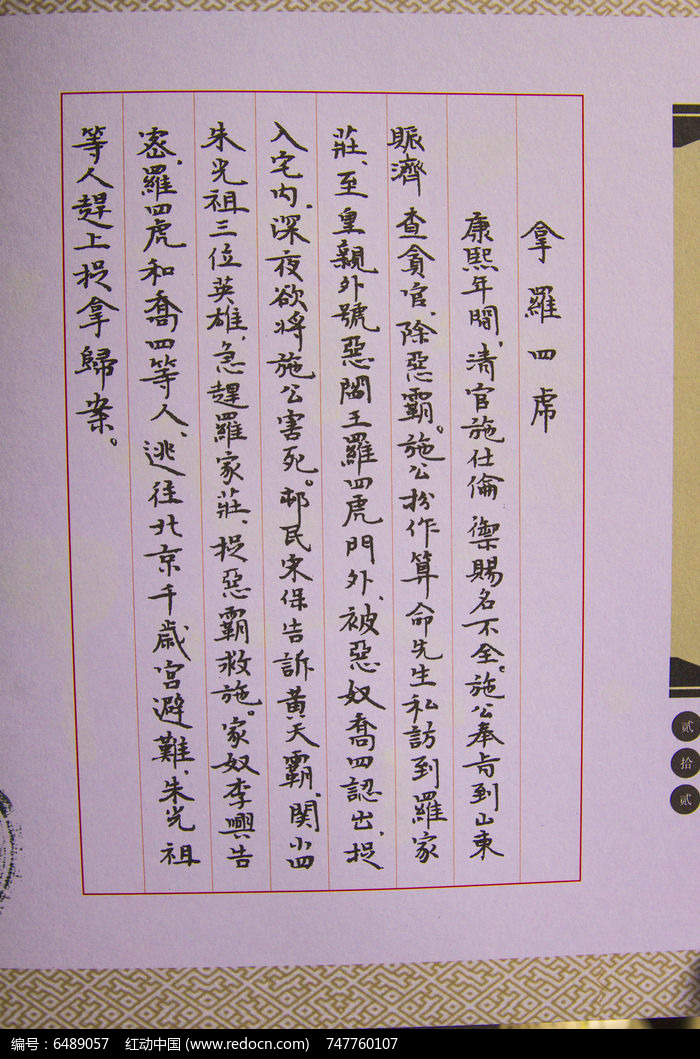 拿羅四虎
康熙年間，清官施仕倫 御賜名不全。施公奉旨到山東
賑濟 查貪官，除惡霸。施公扮作算命先生私訪到羅家
莊、至皇親外號惡閻王羅四虎門外、被惡奴喬四認出，捉
入宅内，深夜欲將施公害死。邨民宋保告訴黄天霸、関小四
朱光祖三位英雄，急趕羅家莊、捉惡霸救施。家奴李興告
密，羅四虎和喬四等人，逃往北京千歲宮避難，朱光祖
等人趕上捉拿歸案。
貳
拾
貳
编号：6489057 红动中国 (www.redocn.com) 747760107